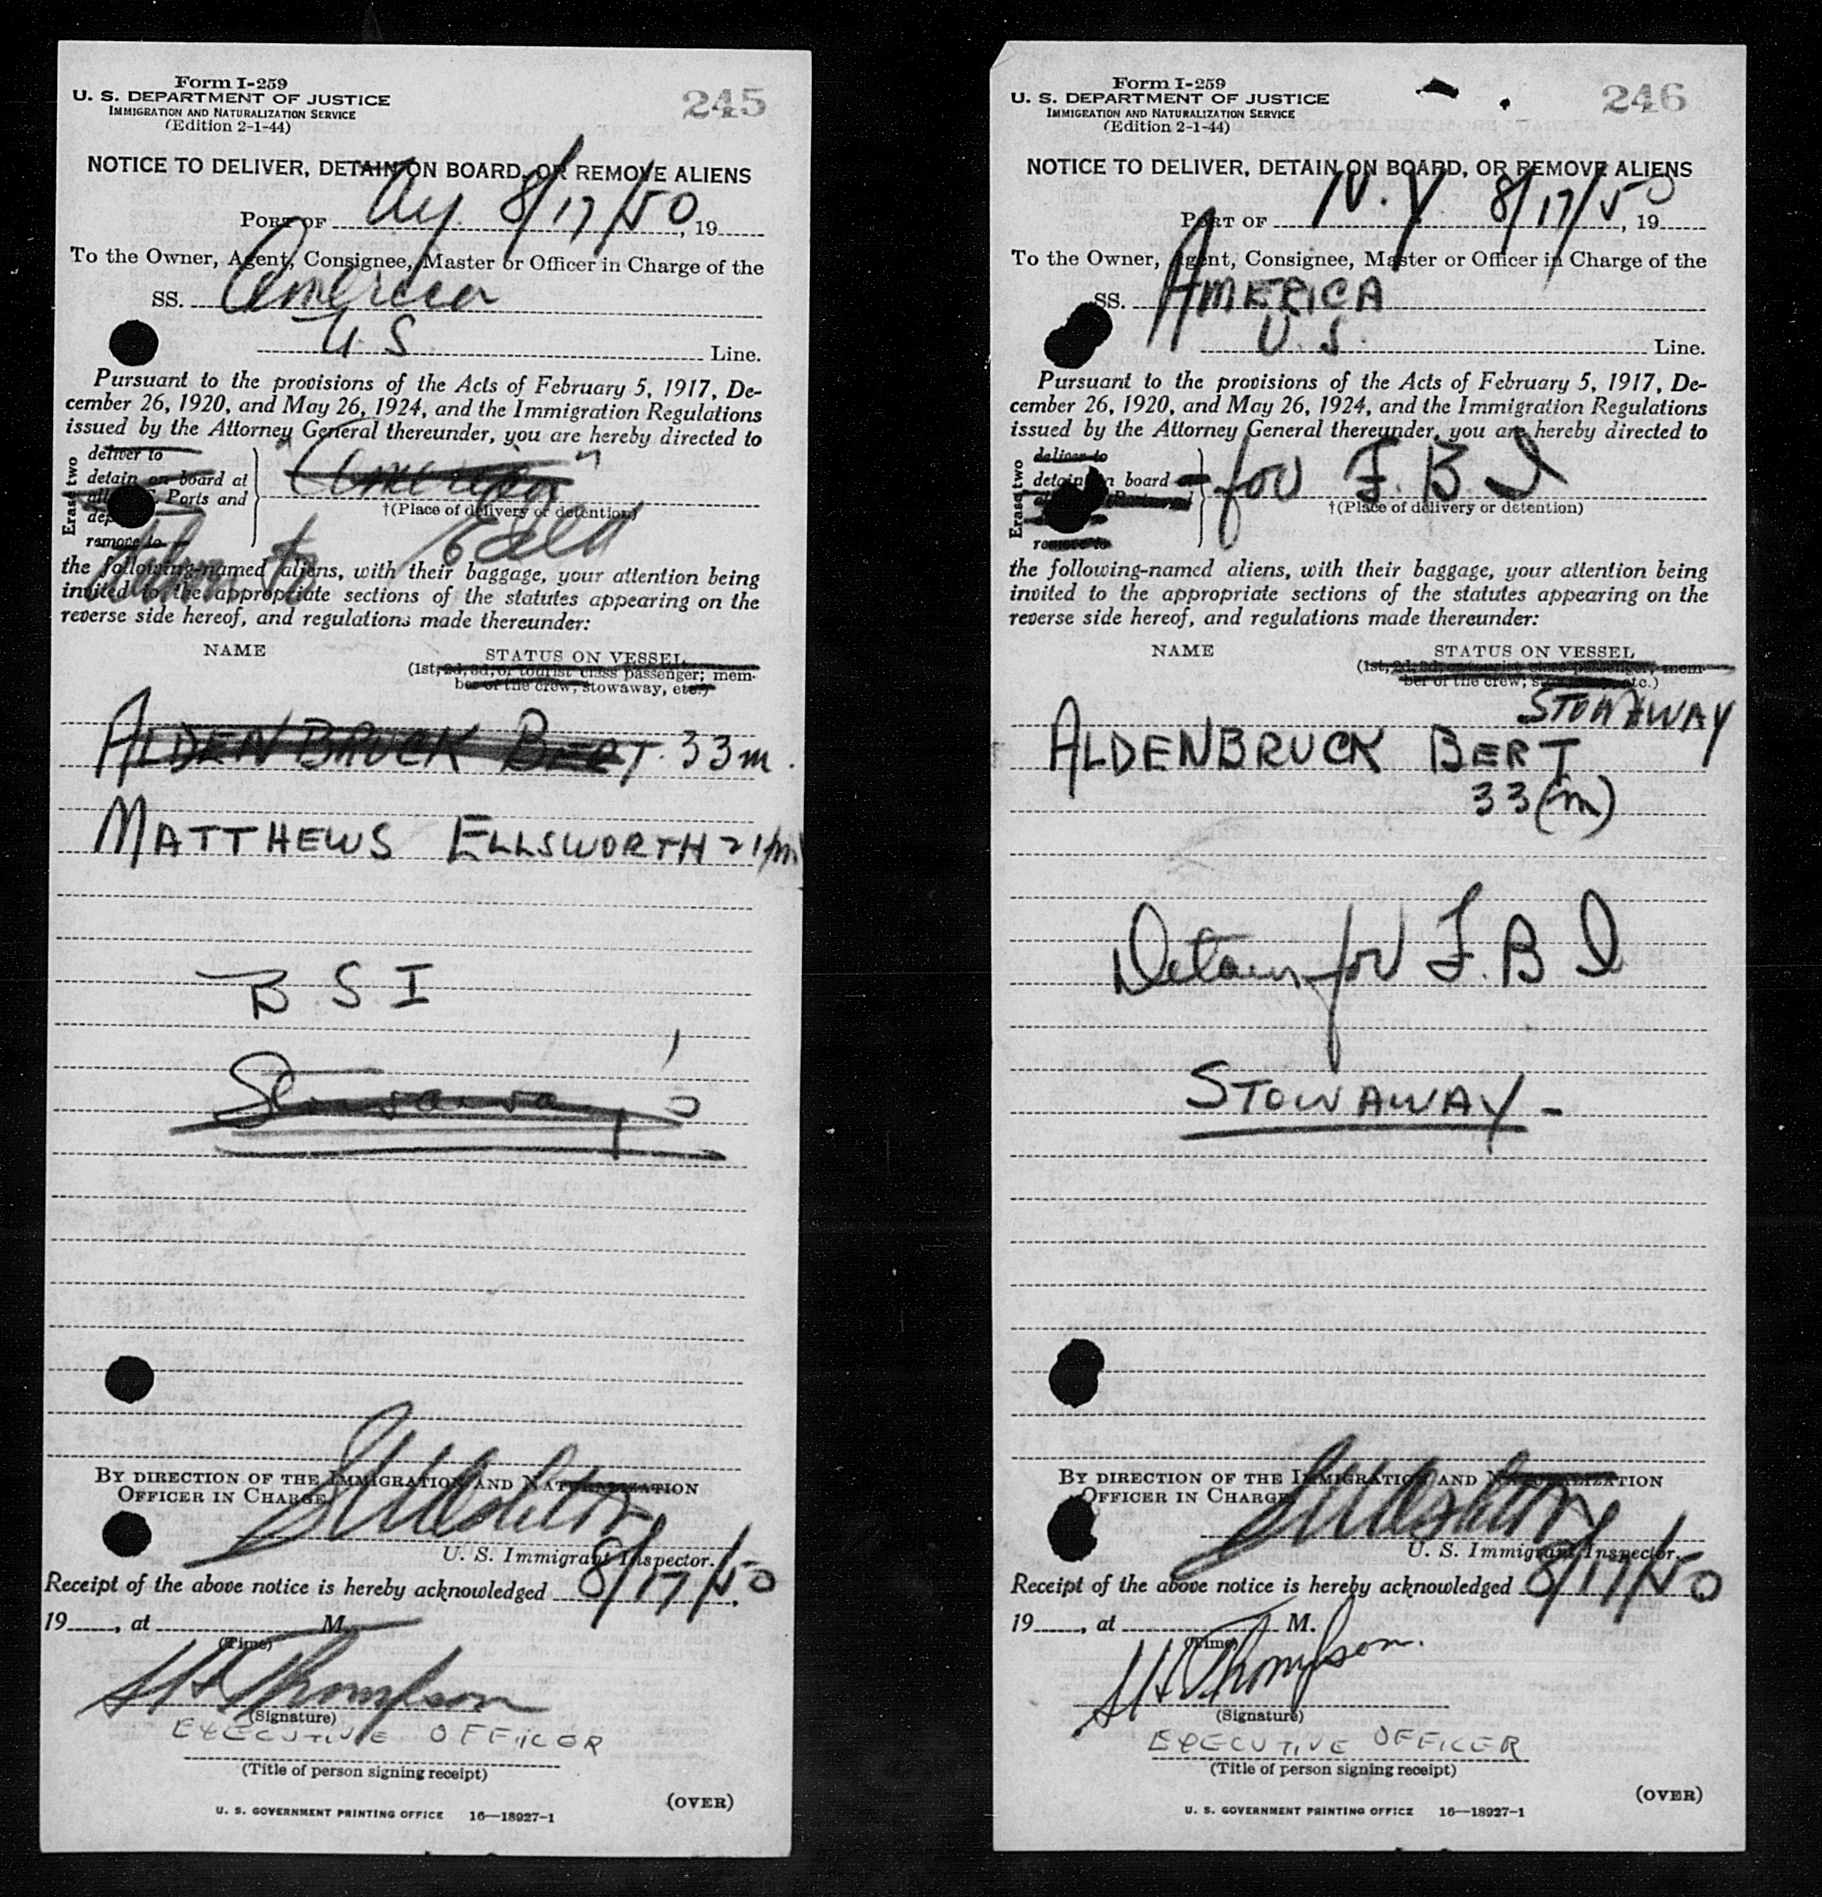 Form I-259
U. S. DEPARTMENT OF JUSTICE
IMMIGRATION AND NATURALIZATION SERVICE
(Edition 2-1-44)
245
NOTICE TO DELIVER, DETAIN ON BOARD, OR REMOVE ALIENS
PORT OF Ny. 8/17/50, 19
To the Owner, Agent, Consignee, Master or Officer in Charge of the
SS. America
U. S Line.
Pursuant to the provisions of the Acts of February 5, 1917, De-
cember 26, 1920, and May 26, 1924, and the Immigration Regulations
issued by the Attorney General thereunder, you are hereby directed to
Erase two
deliver to
detain on board at
all U. S. Ports and
remove to
"America"
†(Place of delivery or detention)
the following-named aliens, with their baggage, your attention being
invited to the appropriate sections of the statutes appearing on the
reverse side hereof, and regulations made thereunder:
NAME
STATUS ON VESSEL
(1st, 2d, 3d, or tourist class passenger; mem-
ber of the crew; stowaway, etc.)
ALDENBRUCK BERT. 33 m.
MATTHEWS ELLSWORTH 21/m
B S I
Stowaway
BY DIRECTION OF THE IMMIGRATION AND NATURALIZATION
OFFICER IN CHARGE
U. S. Immigrant Inspector.
Receipt of the above notice is hereby acknowledged 8/17/50,
19, at M.
(Time)
Thompson
(Signature)
EXECUTIVE OFFICER
(Title of person signing receipt)
(OVER)
U. S. GOVERNMENT PRINTING OFFICE 16—18927-1
Form I-259
U. S. DEPARTMENT OF JUSTICE
IMMIGRATION AND NATURALIZATION SERVICE
(Edition 2-1-44)
246
NOTICE TO DELIVER, DETAIN ON BOARD, OR REMOVE ALIENS
PORT OF N. Y. 8/17/50, 19
To the Owner, Agent, Consignee, Master or Officer in Charge of the
SS. AMERICA
U. S. Line.
Pursuant to the provisions of the Acts of February 5, 1917, De-
cember 26, 1920, and May 26, 1924, and the Immigration Regulations
issued by the Attorney General thereunder, you are hereby directed to
Erase two
deliver to
detain on board
remove to
for F. B I
†(Place of delivery or detention)
the following-named aliens, with their baggage, your attention being
invited to the appropriate sections of the statutes appearing on the
reverse side hereof, and regulations made thereunder:
NAME
STATUS ON VESSEL
(1st, 2d, 3d, or tourist class passenger; mem-
ber of the crew; stowaway, etc.)
STOWAWAY
ALDENBRUCK BERT
33 (m)
Detain for F. B I
STOWAWAY -
BY DIRECTION OF THE IMMIGRATION AND NATURALIZATION
OFFICER IN CHARGE
U. S. Immigrant Inspector.
Receipt of the above notice is hereby acknowledged 8/17/50
19, at M.
(Time)
Thompson.
(Signature)
EXECUTIVE OFFICER
(Title of person signing receipt)
(OVER)
U. S. GOVERNMENT PRINTING OFFICE 16—18927-1